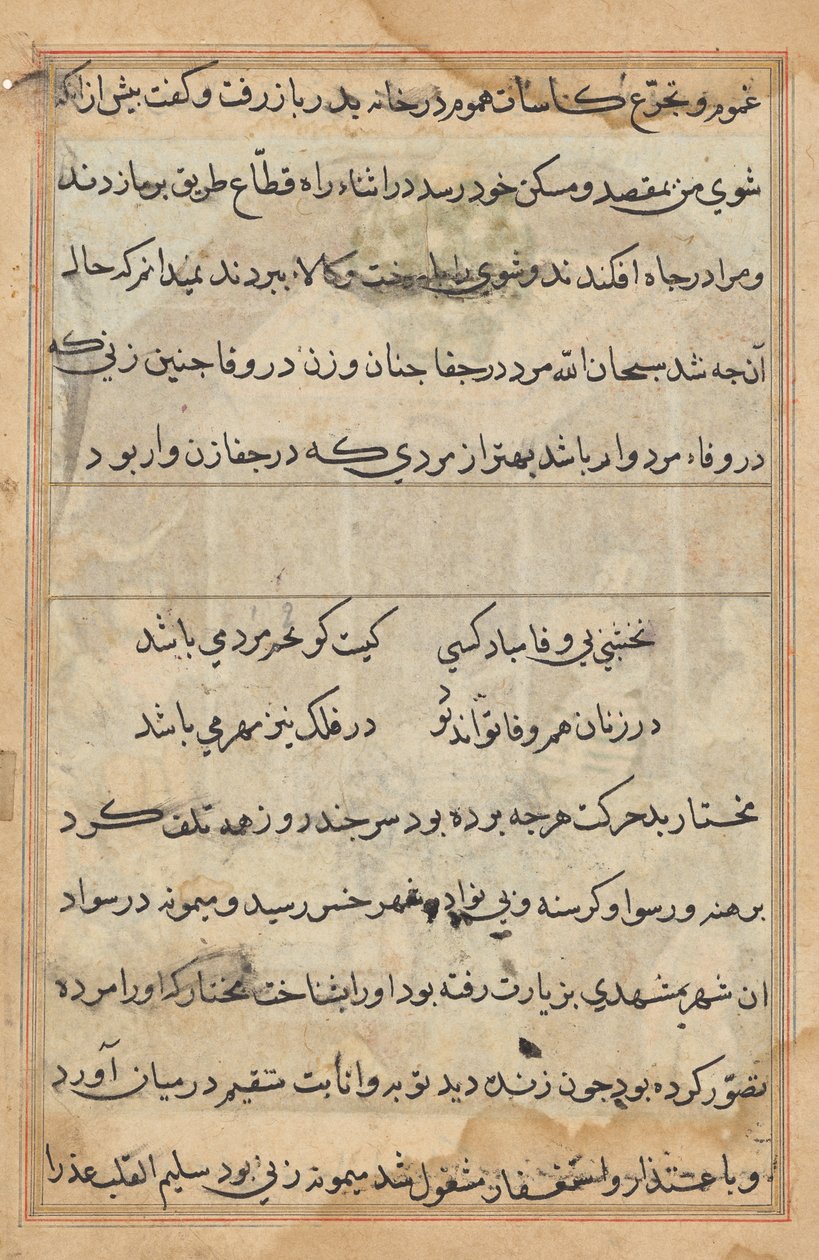 غموم و تجرّع کاسات هموم در خانه پدر باز رفت و کفت بیش از انکه
شوی من بمقصد و مسکن خود رسد در اثناء راه قطّاع طریق بر ما زدند
و مرا در جاه افکندند و شوی را با رخت و کالا ببردند نمیدانم که حال
آن جه شد سبحان الله مرد در جفا جنان و زن در وفا جنین زنی که
در وفاء مردوار باشد بهتر از مردی که در جفا زن وار بود
نخشبی بی وفا مباد کسی کیست کو محرم دمی باشد
در زنان هم وفا تواند بو در فلک نیز مهر می باشد
مختار بدحرکت هرجه برده بود سر جند روز همه تلف کرد
برهنه و رسوا و کرسنه و بی نوا در شهر خسر رسید و میمونه در سواد
ان شهر بمشهدی بزیارت رفته بود او را بشناخت مختار که او را مرده
تصوّر کرده بود جون زنده دید توبه و انابت ستقیم در میان آورد
و با عتذار و استغفار مشغول شد میمونه زنی بود سلیم القلب عذر ا